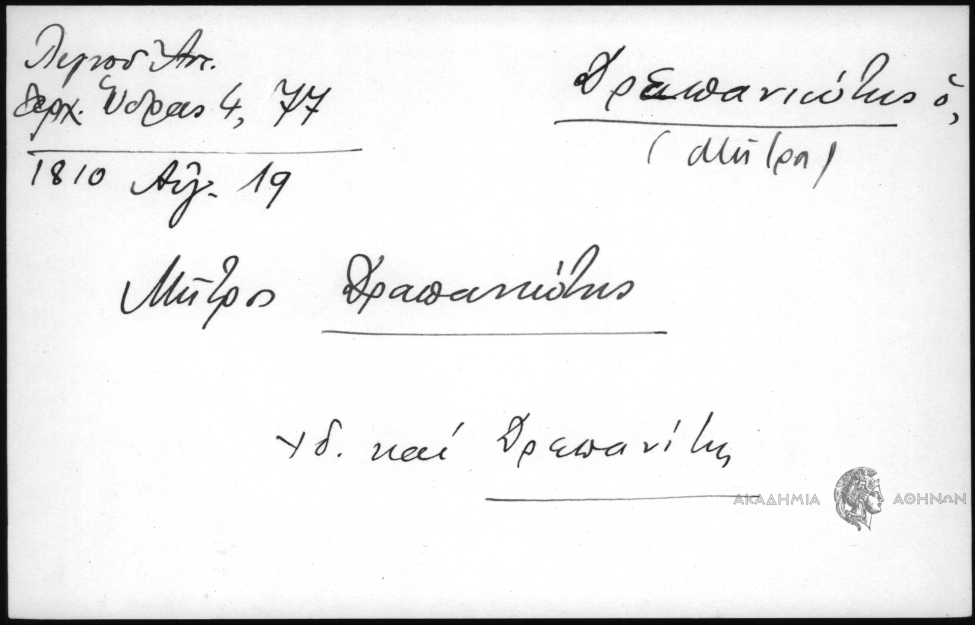 Λιγνοῦ Ἀντ.
ἀρχ. Ὕδρας 4, 77
1810 Αὔγ. 19
Δρεπανιώτης ὁ,
(Μήτρο)
Μῆτρος Δραπανιώτης
δ. καί Δρεπανίτης
ΑΚΑΔΗΜΙΑ ΑΘΗΝΩΝ